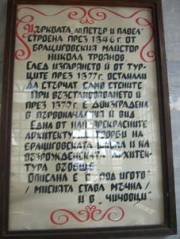 ЦЪРКВАТА „ПЕТЪР И ПАВЕЛ"
СТРОЕНА ПРЕЗ 1846 Г. ОТ
БРАЦИГОВСКИЯ МАЙСТОР
НИКОЛА ТРОЯНОВ
СЛЕД ИЗГАРЯНЕТО Й ОТ ТУР-
ЦИТЕ ПРЕЗ 1877 Г. ОСТАНАЛИ
ДА СТЪРЧАТ САМО СТЕНИТЕ
ПРИ ВЪЗСТАНОВЯВАНЕТО Й
ПРЕЗ 1937 Г. Е ДОИЗГРАДЕНА
В ПЪРВОНАЧАЛНИЯ Й ВИД
ЕДНА ОТ НАЙ-ПРЕКРАСНИТЕ
АРХИТЕКТУРНИ ТВОРБИ НА
БРАЦИГОВСКАТА ШКОЛА И НА
ВЪЗРОЖДЕНСКАТА АРХИТЕК-
ТУРА ВЪОБЩЕ
ОПИСАНА Е В „ПОД ИГОТО"
/ МИСИЯТА СТАВА МЪЧНА /
И В „ЧИЧОВЦИ"